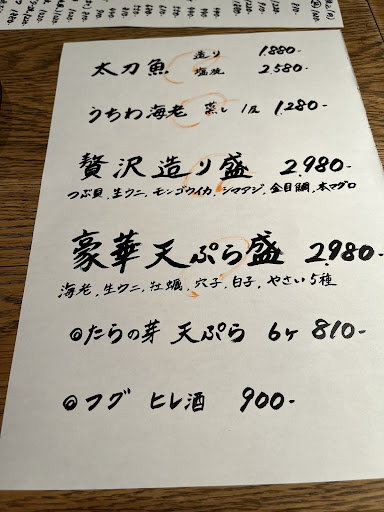 太刀魚 造り 1.880-
塩焼 2.580-
うちわ海老 蒸し 1匹 1.280-
贅沢造り盛 2.980-
つぶ貝、生ウニ、モンゴウイカ、シマアジ、金目鯛、本マグロ
豪華天ぷら盛 2.980-
海老、生ウニ、牡蠣、穴子、白子、やさい5種
◎たらの芽 天ぷら 6ケ 810-
◎フグ ヒレ酒 900-